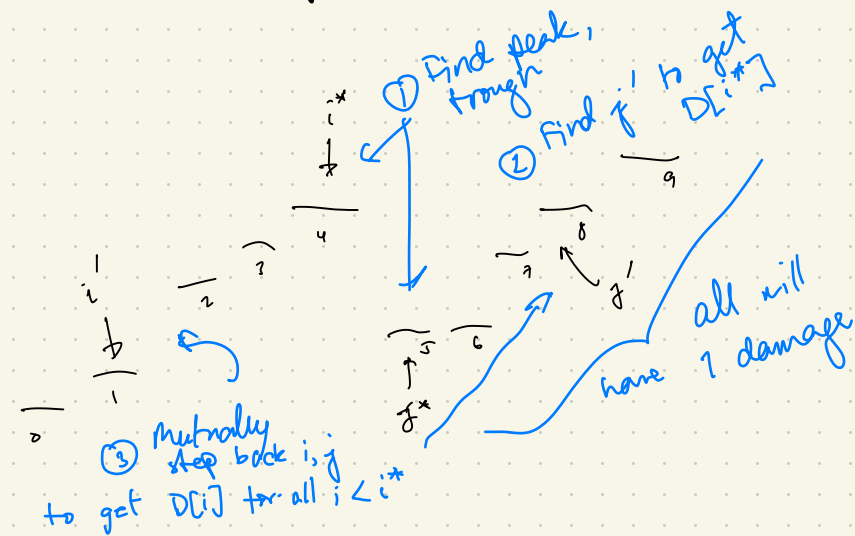 ① Find peak,
trough
② Find j' to get
D[i*]
i*
9
8
4
3
7
i'
2
j'
all will
have 1 damage
5
6
1
j*
0
③ Mutually
step back i, j
to get D[i] for all i < i*